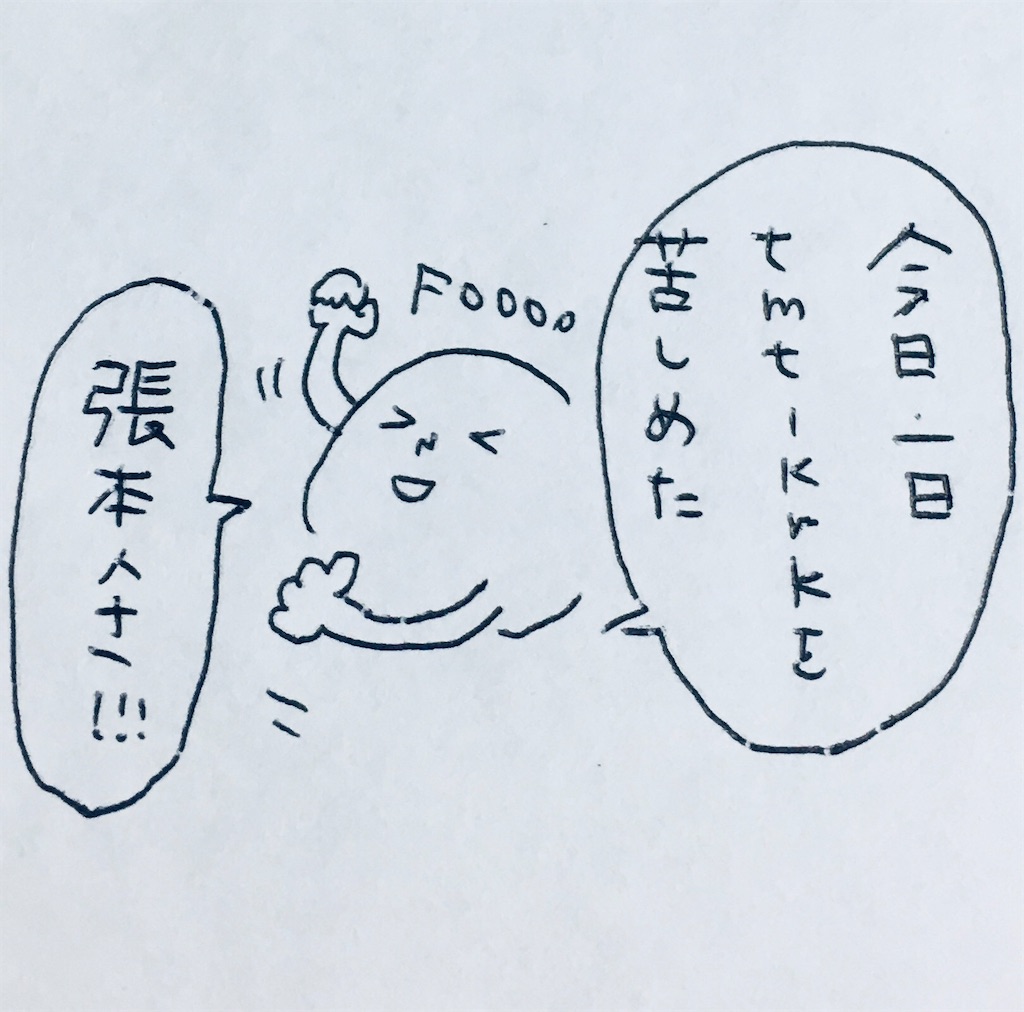 今日一日
tmt-KrKを
苦しめた
Foooo
張本人ナン!!!